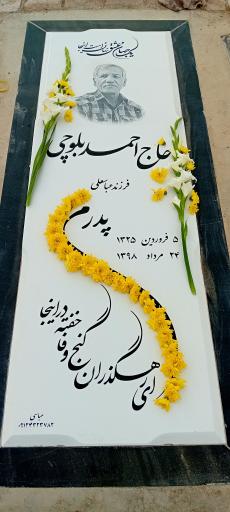 حاج احمد بلوچی
فرزند عباسعلی
پدرم
۵ فروردین ۱۳۲۵
۲۴ مرداد ۱۳۹۸
ای رهگذران گنج وفا خفته در اینجا
عباسی
۰۹۱۲۴۳۲۳۷۸۲